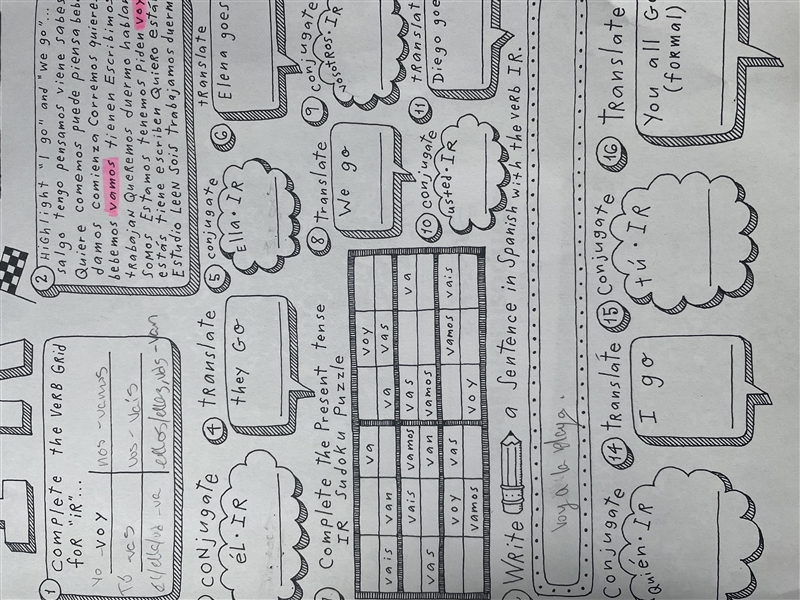 1 Complete the verb grid
for "iR"...
Yo - voy
nos - vamos
Tú - vas
vos - vais
él/ella/ud - va
ellos/ellas/uds - van
2 Highlight "I go" and "we go"...
salgo tengo pensamos viene sabes
Quiere comemos puede piensa beb
damos comienza Corremos quiere
bebemos vamos tienen Escribimos
trabajan Queremos duermo hablan
Somos Estamos tenemos Piden voy
estás tiene escriben Quiero está
Estudio LEEN Sois trabajamos duerm
conjugate
él·IR
4 translate
they Go
5 conjugate
Ella·IR
6 translate
Elena goes
Complete the Present tense
IR Sudoku Puzzle
va voy
vais van va vas
vais vamos vas va
vas van vamos
voy vas vamos vais
vamos voy
8 translate
We go
9 conjugate
Vosotros·IR
10 conjugate
usted·IR
11 translate
Diego goes
Write a sentence in Spanish with the verb IR.
Voy a la playa.
conjugate
Quién·IR
14 translate
I go
15 conjugate
tú·IR
16 translate
You all Go
(formal)